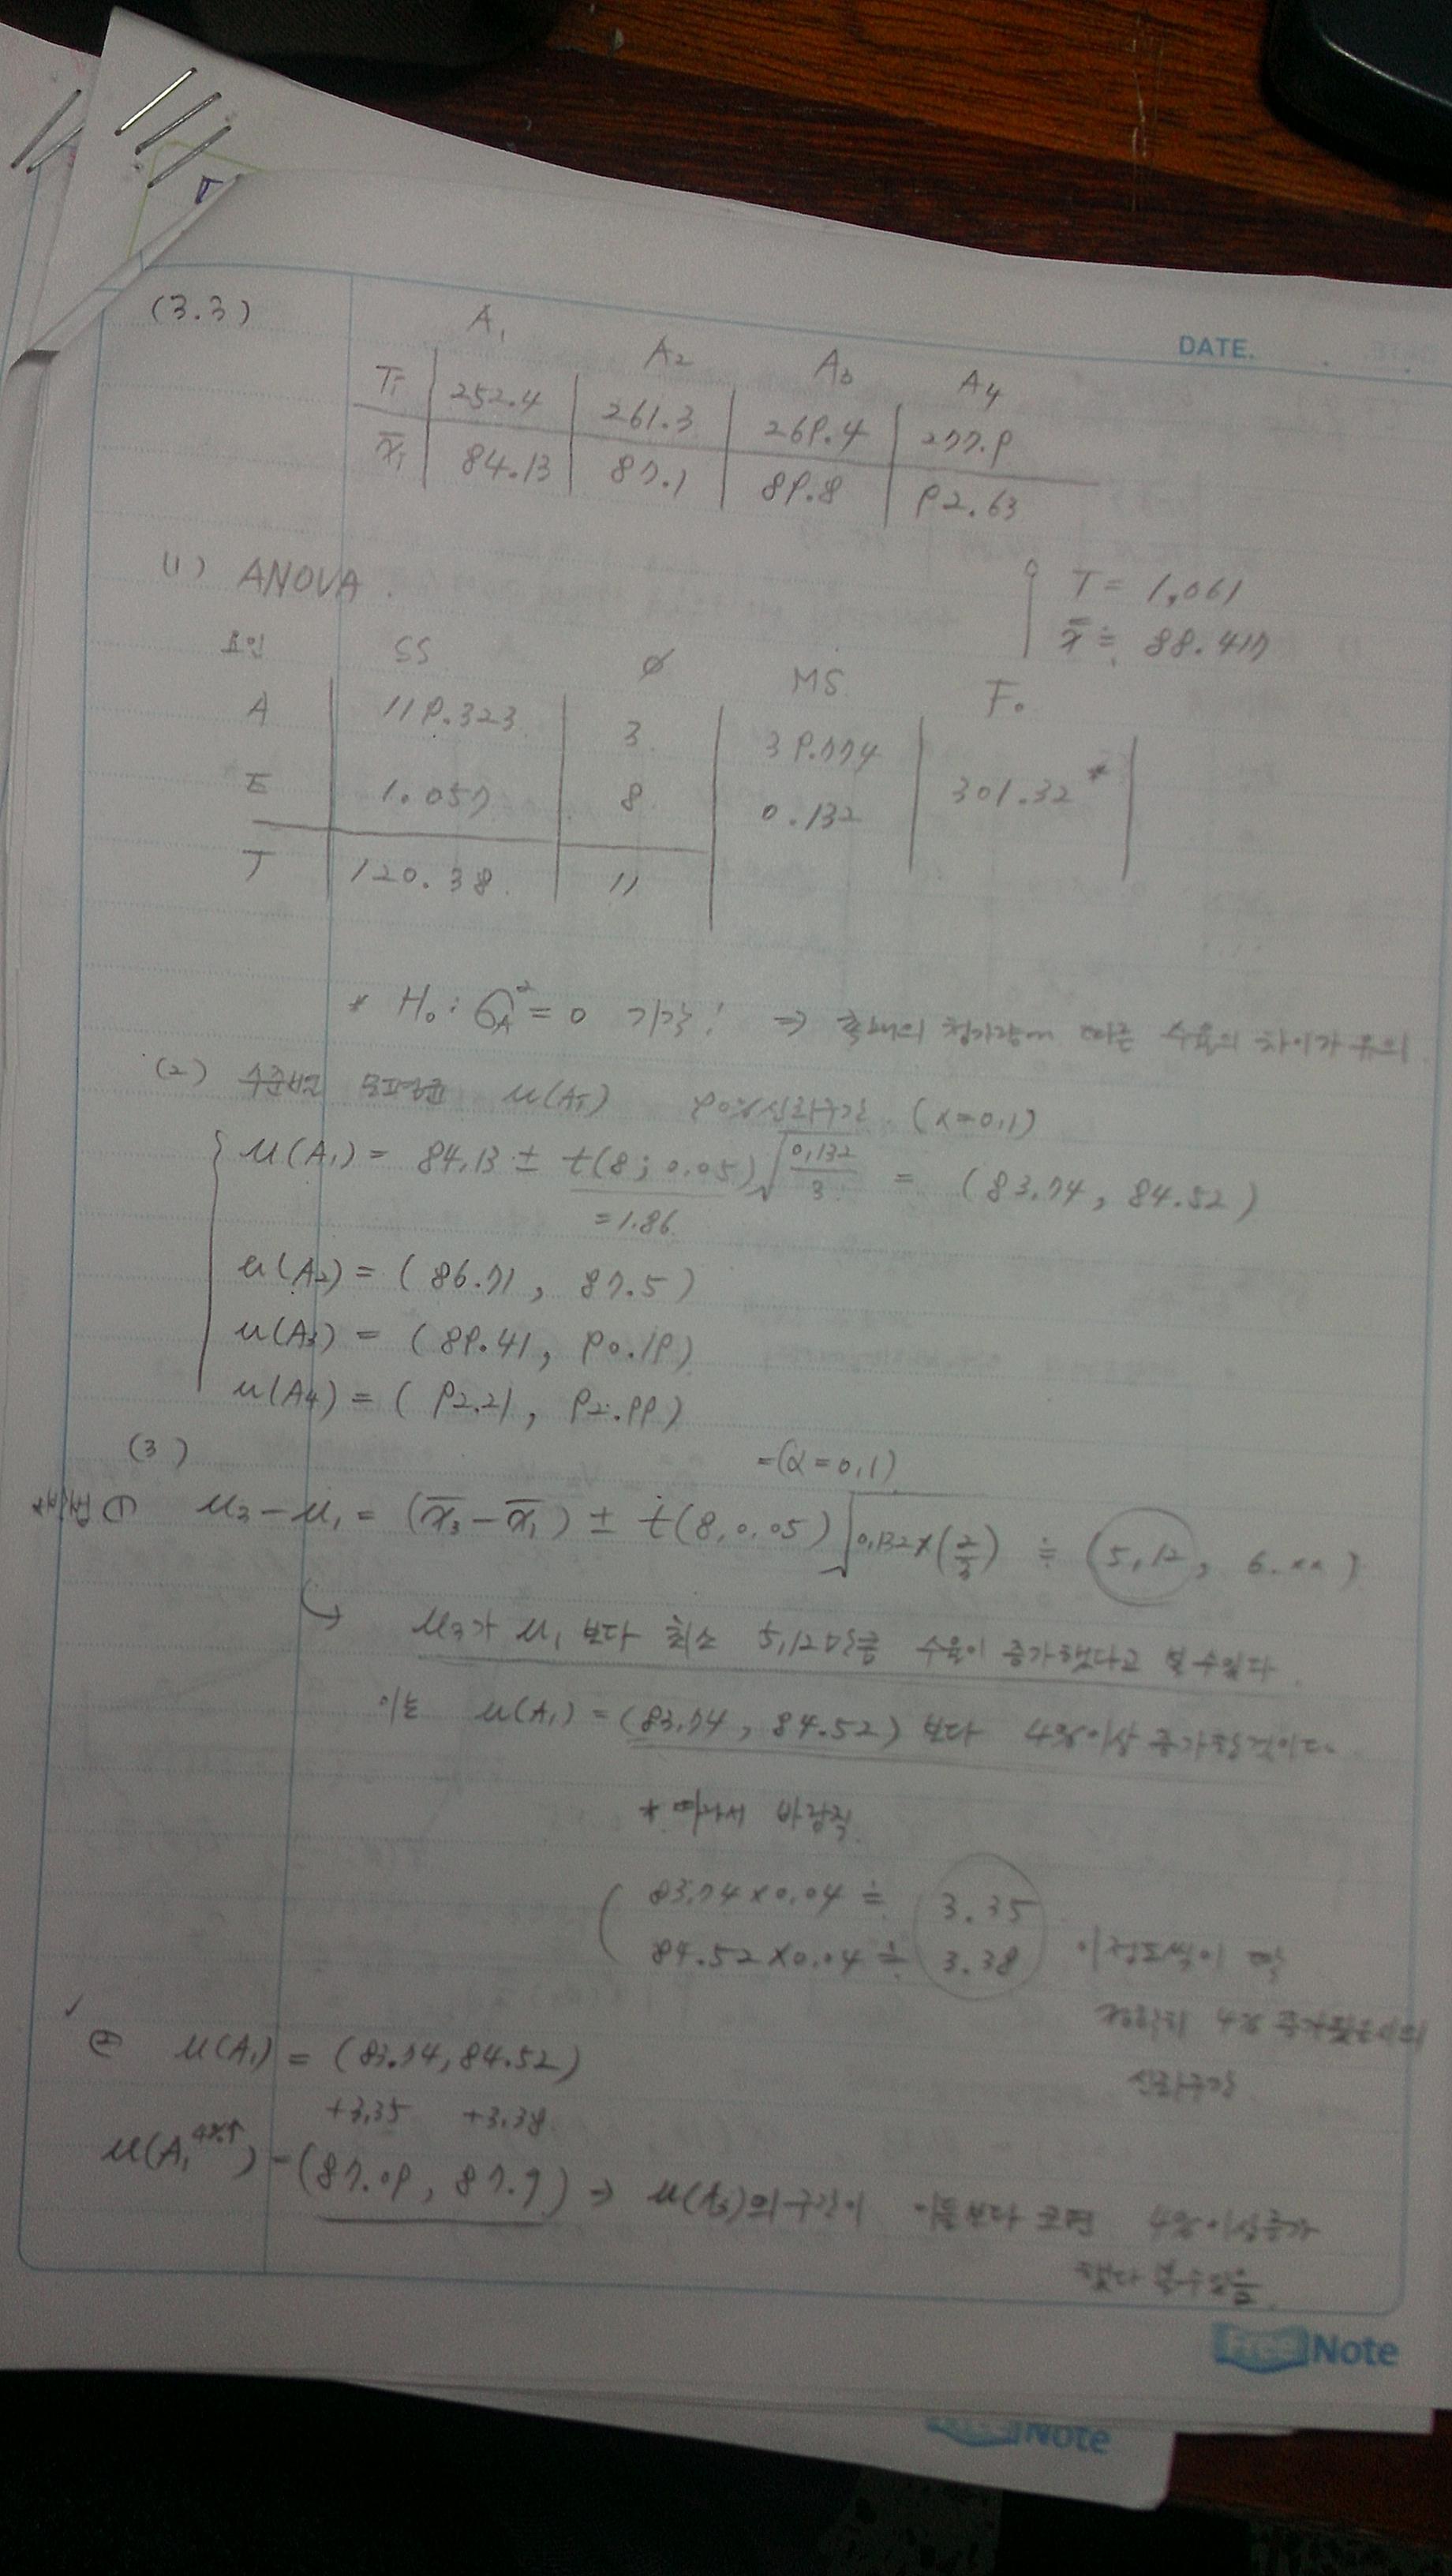 DATE.
(3.3)
A₁ A₂ A₃ A₄
Tᵢ 252.4 261.3 269.4 277.9
x̄ᵢ 84.13 87.1 89.8 92.63
T = 1,061
x̿ ≒ 88.417
(1) ANOVA.
요인 SS ø MS F₀
A 119.323 3 39.774 301.32*
E 1.057 8 0.132
T 120.38 11
* H₀ : σ_A² = 0 기각! ⇒ 촉매의 첨가량에 따른 수율의 차이가 유의
(2) 수준별 모평균 μ(Aᵢ) 90% 신뢰구간 (α=0.1)
μ(A₁) = 84.13 ± t(8; 0.05)√(0.132/3) = (83.74, 84.52)
=1.86
μ(A₂) = (86.71, 87.5)
μ(A₃) = (89.41, 90.19)
μ(A₄) = (92.21, 92.99)
(3)
=(α=0.1)
① μ₃-μ₁ = (x̄₃-x̄₁) ± t(8, 0.05)√(0.132×(2/3)) ≒ (5.12, 6.××)
↳ μ₃가 μ₁ 보다 최소 5.12만큼 수율이 증가했다고 볼 수 있다.
이는 μ(A₁) = (83.74, 84.52) 보다 4%이상 증가한것이다.
* 따라서 바람직
83.74×0.04 ≒ 3.35
84.52×0.04 ≒ 3.38 이정도씩이 딱
정확히 4% 증가
신뢰구간
✓
② μ(A₁) = (83.74, 84.52)
+3.35 +3.38
μ(A₁⁴%↑) = (87.09, 87.9) ⇒ μ(A₃)의 구간이 이들보다 크면 4%이상증가
했다 볼수있음.
Free Note
Note